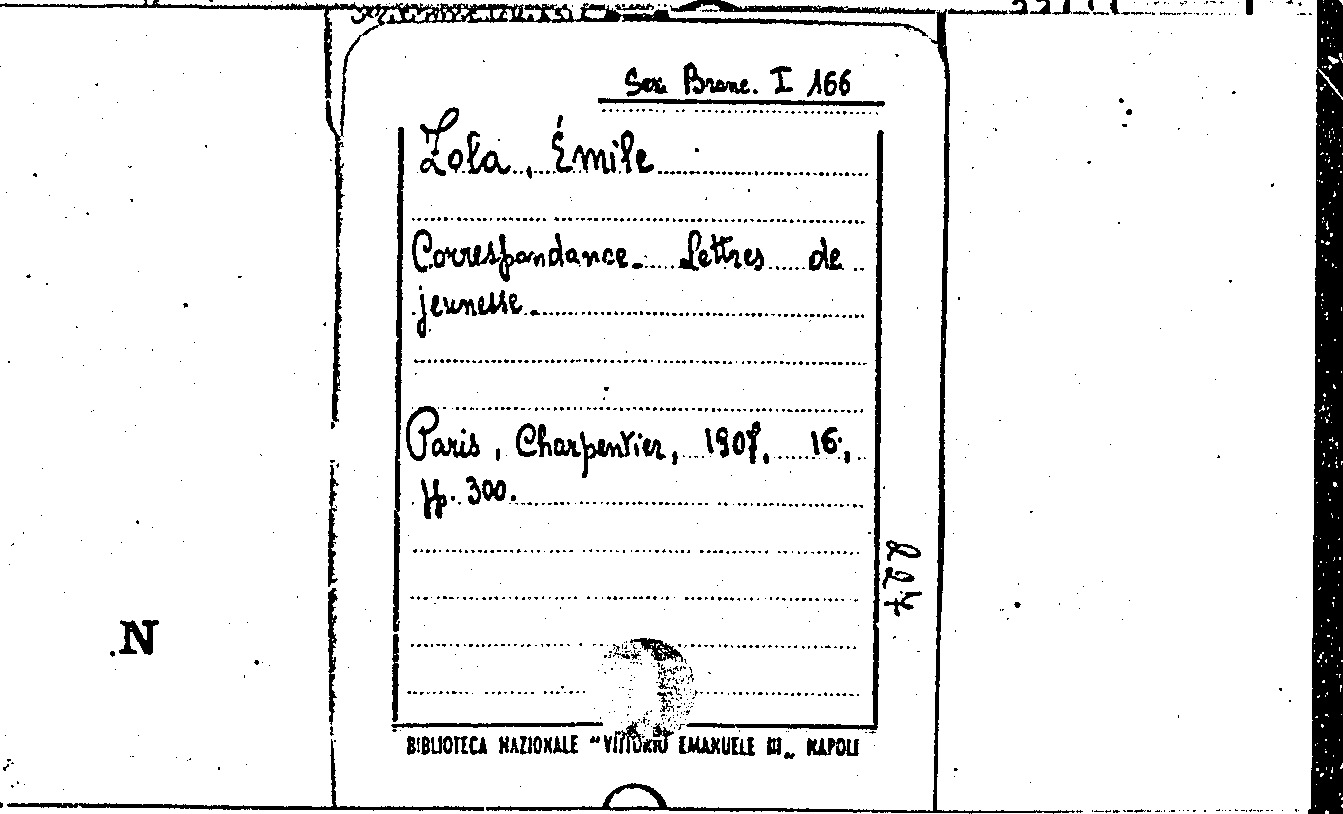 Sez. Branc. I 166
Zola, Émile
Correspondance. Lettres de
jeunesse.
Paris, Charpentier, 1907, 16°,
pp. 300.
227
N
BIBLIOTECA NAZIONALE "VITTORIO EMANUELE III„ NAPOLI